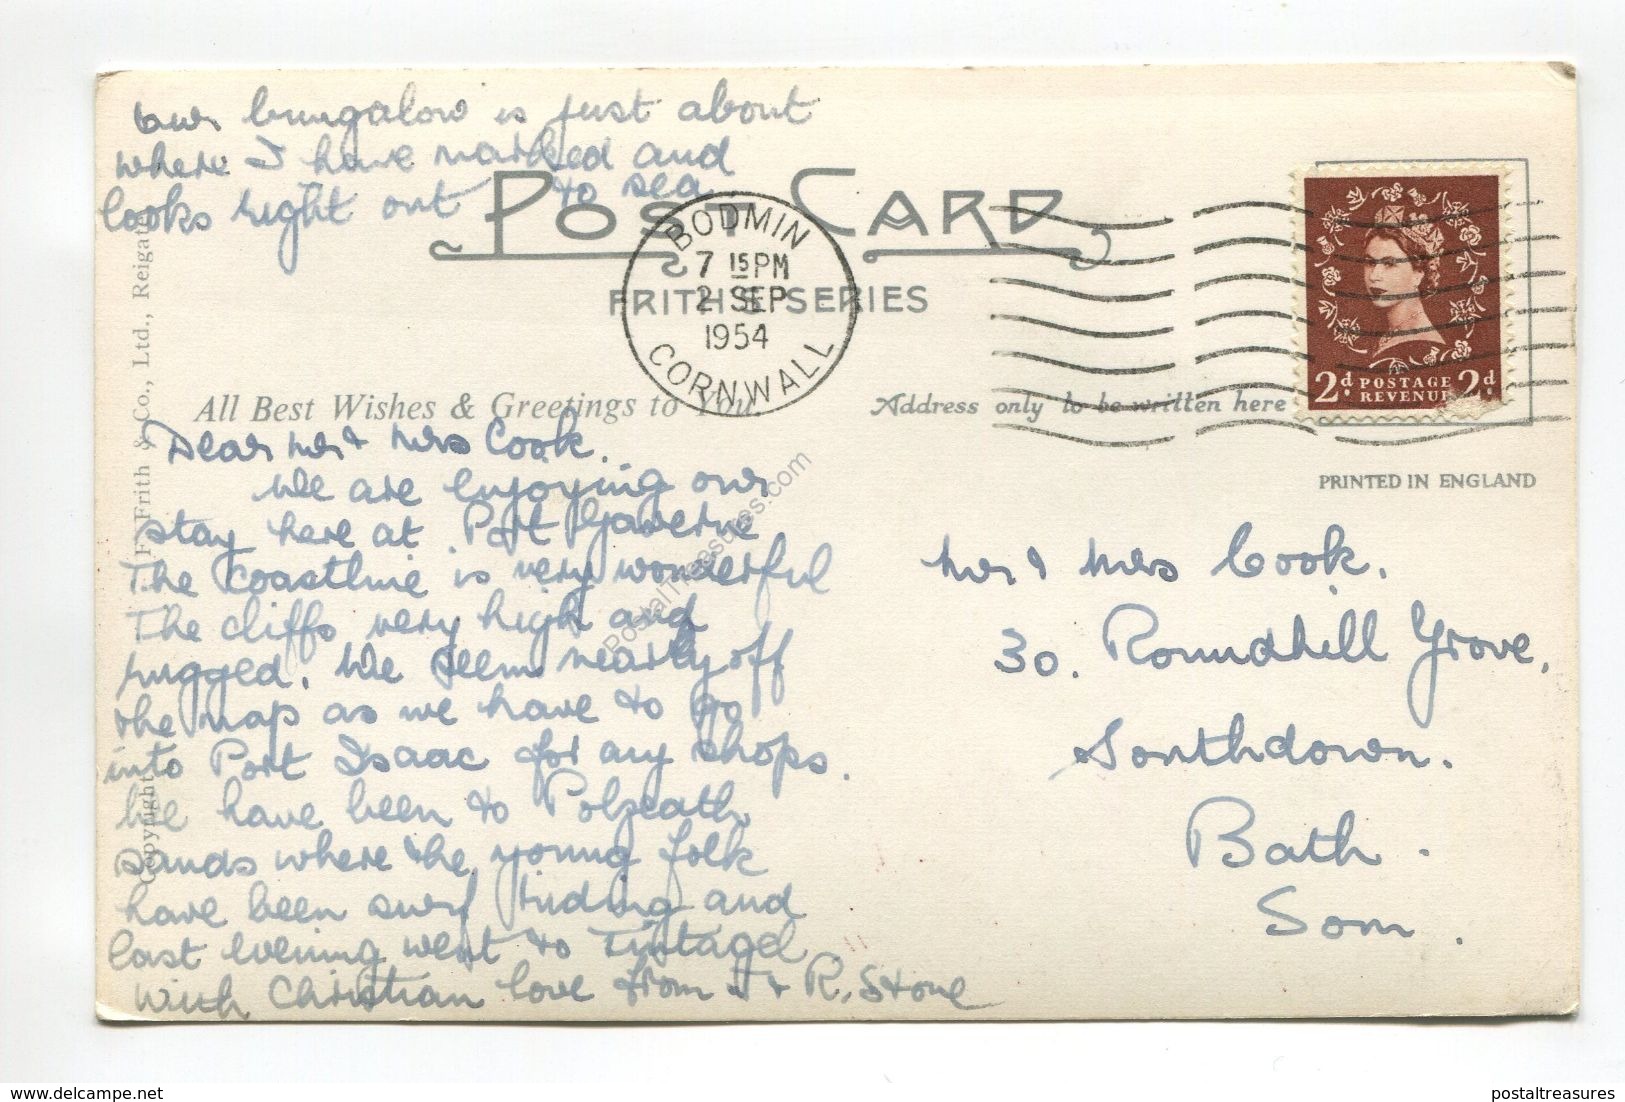 our bungalow is just about
where I have marked and
looks right out to sea
POST CARD
FRITH'S SERIES
BODMIN
7 15 PM
2 SEP
1954
CORNWALL
2d POSTAGE REVENUE 2d
All Best Wishes & Greetings to You.
Address only to be written here
PRINTED IN ENGLAND
Copyright F. Frith & Co., Ltd., Reigate
Dear Mr & Mrs Cook.
We are enjoying our
stay here at Port Gaverne
The coastline is very wonderful
The cliffs very high and
rugged. We seem nearly off
the map as we have to go
into Port Isaac for any shops.
We have been to Polzeath
sands where the young folk
have been surf riding and
last evening went to Tintagel
With Christian love from J & R. Stone
Mr & Mrs Cook.
30. Roundhill Grove,
Southdown.
Bath.
Som.
PostalTreasures.com
Visit our store on www.delcampe.net
postaltreasures